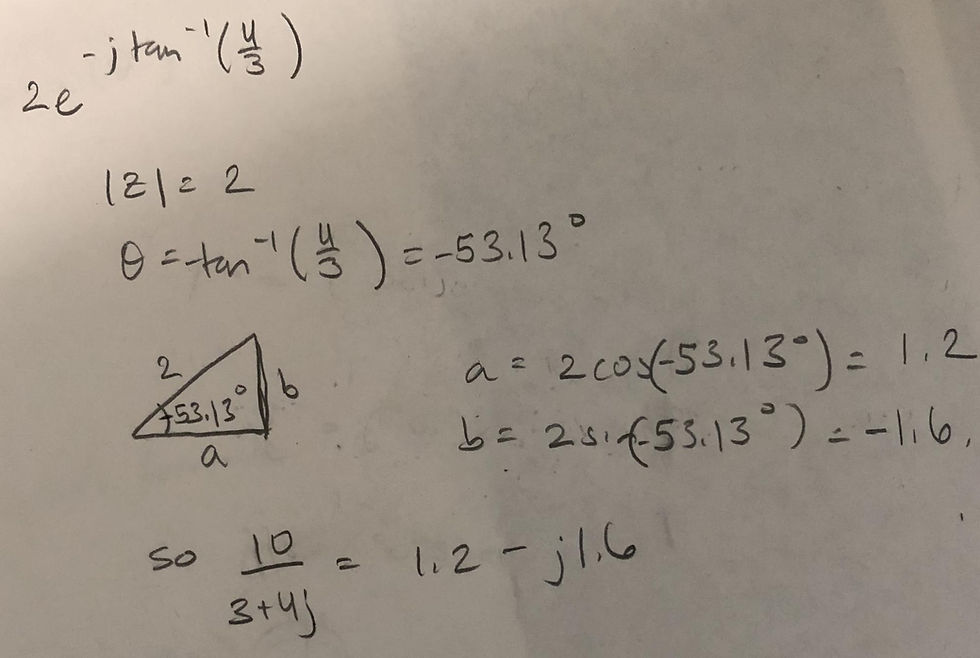 2e^{-j tan^{-1}(4/3)}
|z| = 2
θ = tan^{-1}(4/3) = -53.13°
2
-53.13°
b
a
a = 2cos(-53.13°) = 1.2
b = 2sin(-53.13°) = -1.6,
so 10/(3+4j) = 1.2 - j1.6